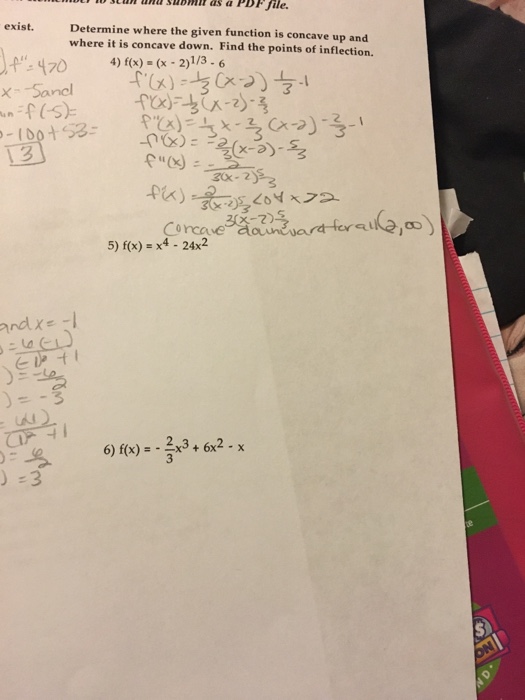 to scan and submit as a PDF file.
exist.
Determine where the given function is concave up and
where it is concave down. Find the points of inflection.
4) f(x) = (x - 2)1/3 - 6
f'(x) = 1/3 (x-2) 1/3 -1
f'(x) = 1/3 (x-2) - 2/3
f"(x) = 1/3 x - 2/3 (x-2) - 2/3 -1
f"(x) = -2/9 (x-2) - 5/3
f"(x) = -
3(x-2) 5/3
2
3(x-2) 5/3 <0 ∀ x>2
3(x-2) 5/3
Concave downward for all (2,∞)
f"=4>0
x=-5 and
f(-5)=
-100+53=
13
5) f(x) = x4 - 24x2
and x = -1
= 6(-1)
+1
= -6
2
) = -3
+1
= 6
2
) = 3
6) f(x) = - 2/3 x3 + 6x2 - x